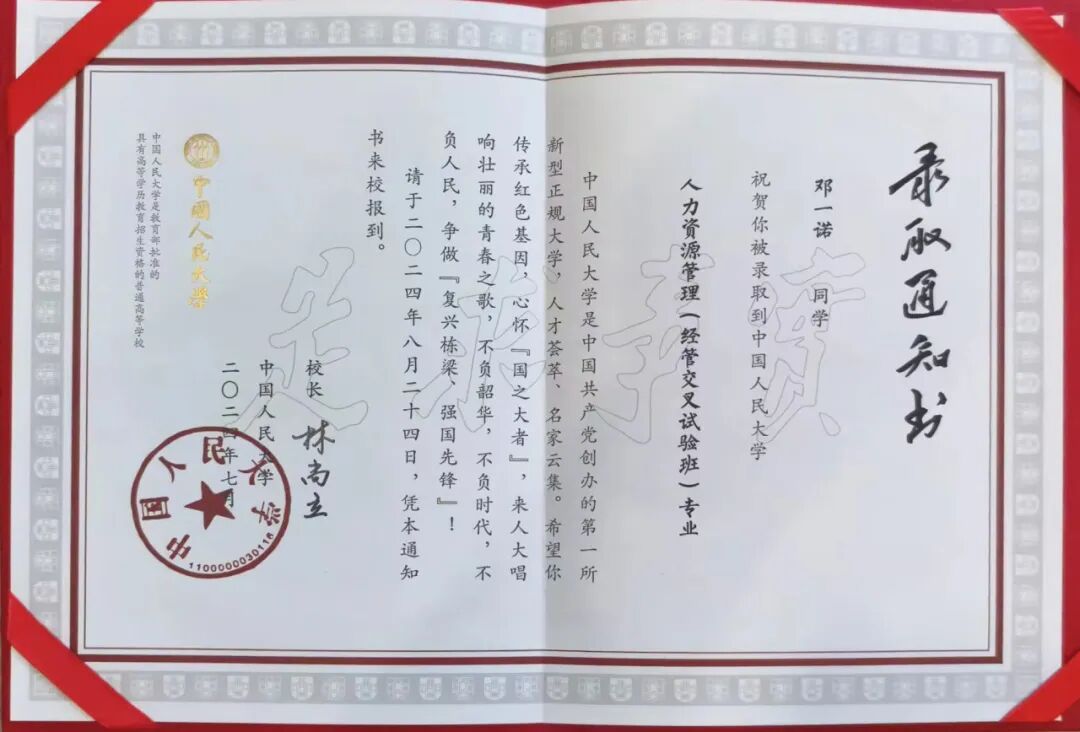 录取通知书
邓一诺 同学
祝贺你被录取到中国人民大学
人力资源管理(经管交叉试验班)专业
中国人民大学是中国共产党创办的第一所
新型正规大学,人才荟萃、名家云集。希望你
传承红色基因,心怀『国之大者』,来人大唱
响壮丽的青春之歌,不负韶华,不负时代,不
负人民,争做『复兴栋梁、强国先锋』!
请于二〇二四年八月二十四日,凭本通知
书来校报到。
校长 林尚立
中国人民大学
二〇二四年七月
中国人民大学
1100000030116
中國人民大學
中国人民大学是教育部批准的
具有高等学历教育招生资格的普通高等学校